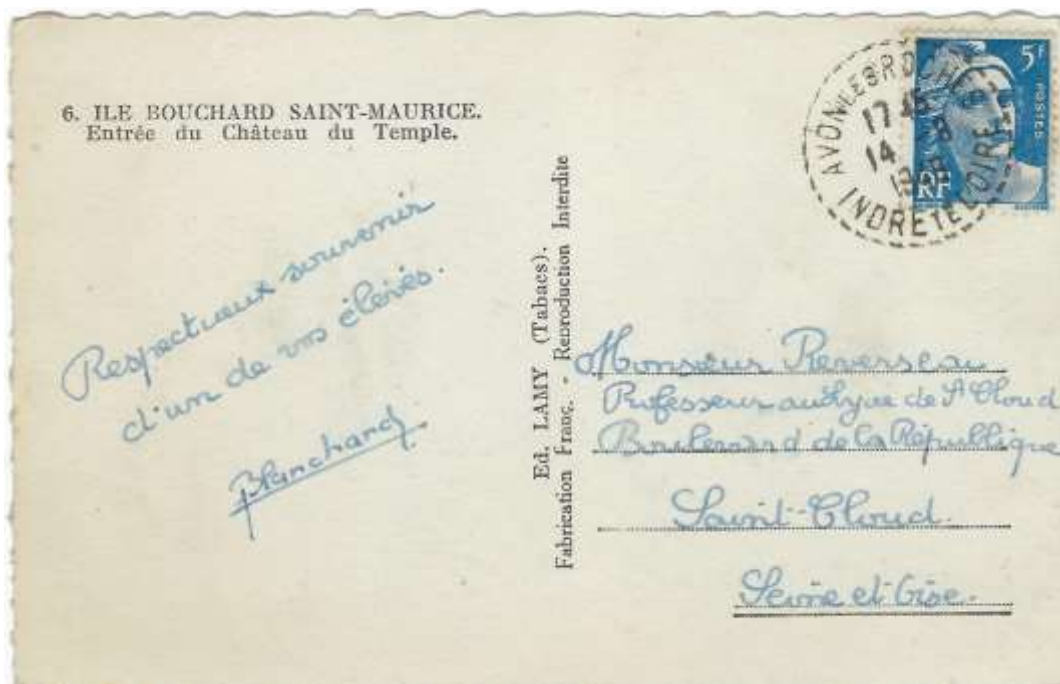 6. ILE BOUCHARD SAINT-MAURICE.
Entrée du Château du Temple.
Respectueux souvenir
d'un de vos élèves.
Blanchard
Ed. LAMY (Tabacs).
Fabrication Franç. - Reproduction Interdite
AVON LES ROCHES
17 45
14 - 8
INDRE ET LOIRE
5F
POSTES
RF
Monsieur Reversseau
Professeur au Lycée de St Cloud
Boulevard de la République
Saint-Cloud.
Seine et Oise.